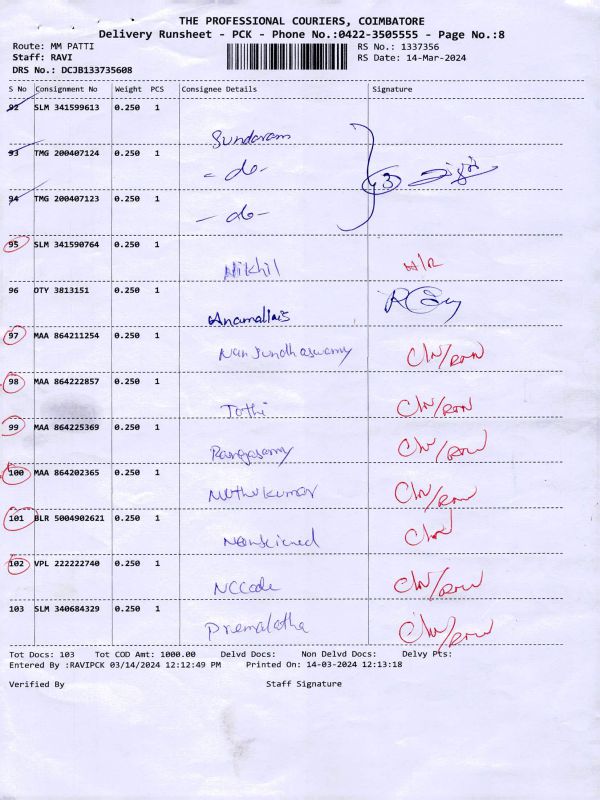 THE PROFESSIONAL COURIERS, COIMBATORE
Delivery Runsheet - PCK - Phone No.:0422-3505555 - Page No.:8
Route: MM PATTI RS No.: 1337356
Staff: RAVI RS Date: 14-Mar-2024
DRS No.: DCJB133735608
S No Consignment No Weight PCS Consignee Details Signature
92 SLM 341599613 0.250 1
Sundaram
93 TMG 200407124 0.250 1
- do -
43
94 TMG 200407123 0.250 1
- do -
95 SLM 341590764 0.250 1
Nikhil
96 DTY 3813151 0.250 1
97 MAA 864211254 0.250 1
Nanjundhaswamy
98 MAA 864222857 0.250 1
Tothi
99 MAA 864225369 0.250 1
Rangasamy
100 MAA 864202365 0.250 1
Muthukumar
101 BLR 5004902621 0.250 1
102 VPL 222222740 0.250 1
NCCode
103 SLM 340684329 0.250 1
Premalatha
Tot Docs: 103 Tot COD Amt: 1000.00 Delvd Docs: Non Delvd Docs: Delvy Pts:
Entered By :RAVIPCK 03/14/2024 12:12:49 PM Printed On: 14-03-2024 12:13:18
Verified By Staff Signature